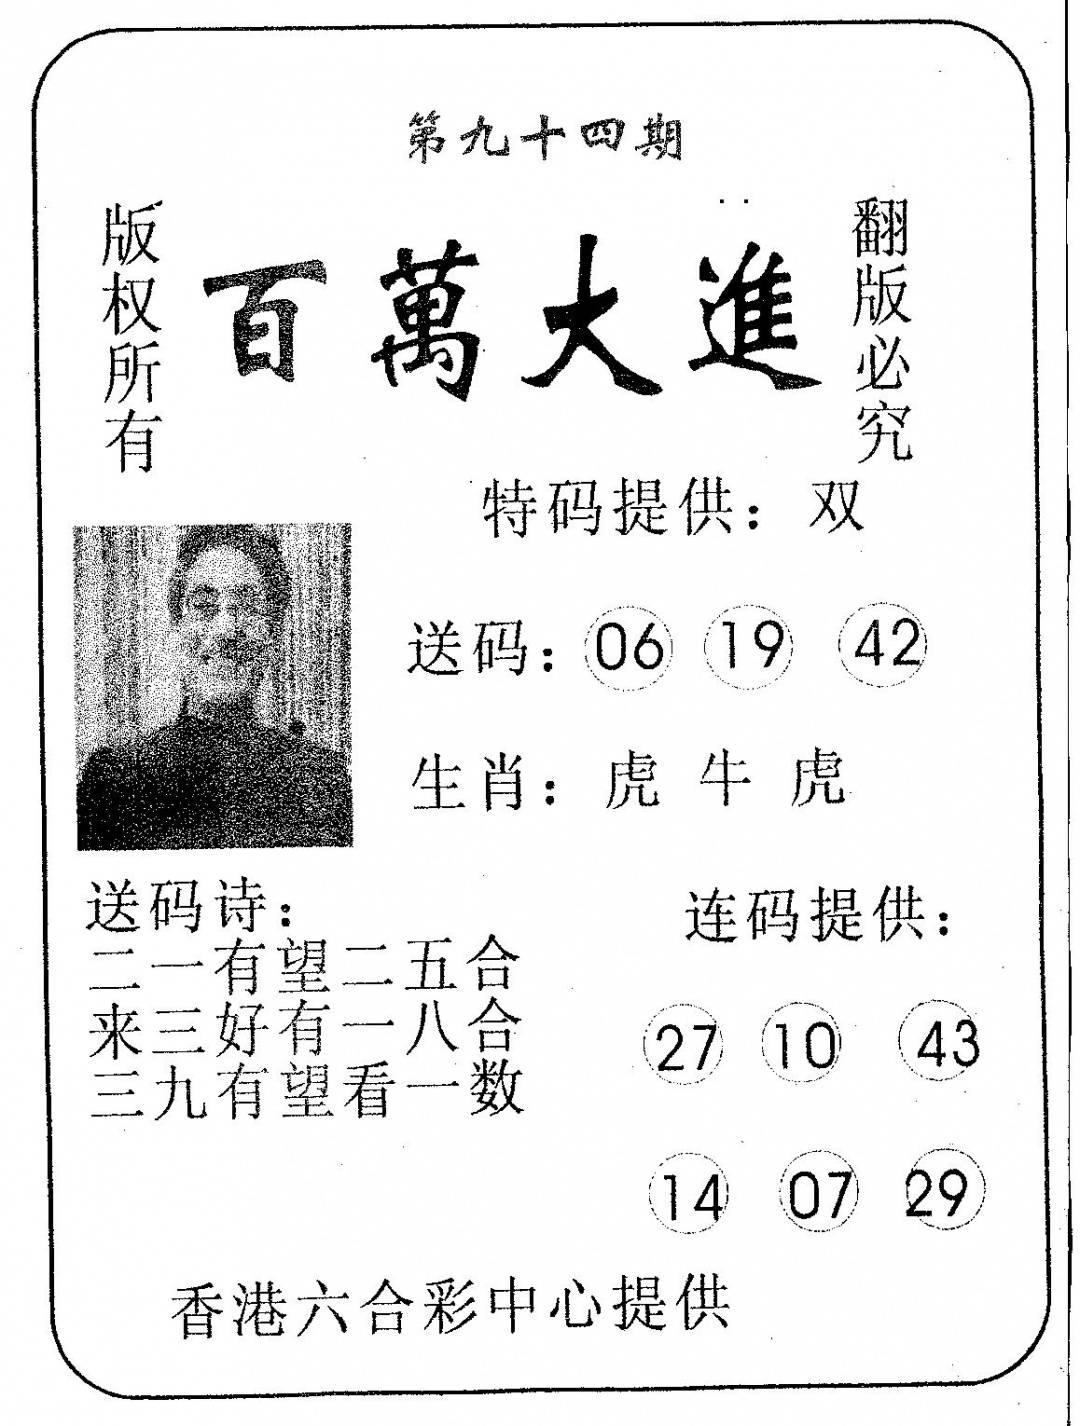 第九十四期
版权所有
百萬大進
翻版必究
特码提供：双
送码：06 19 42
生肖：虎 牛 虎
送码诗：
二一有望二五合
来三好有一八合
三九有望看一数
连码提供：
27 10 43
14 07 29
香港六合彩中心提供